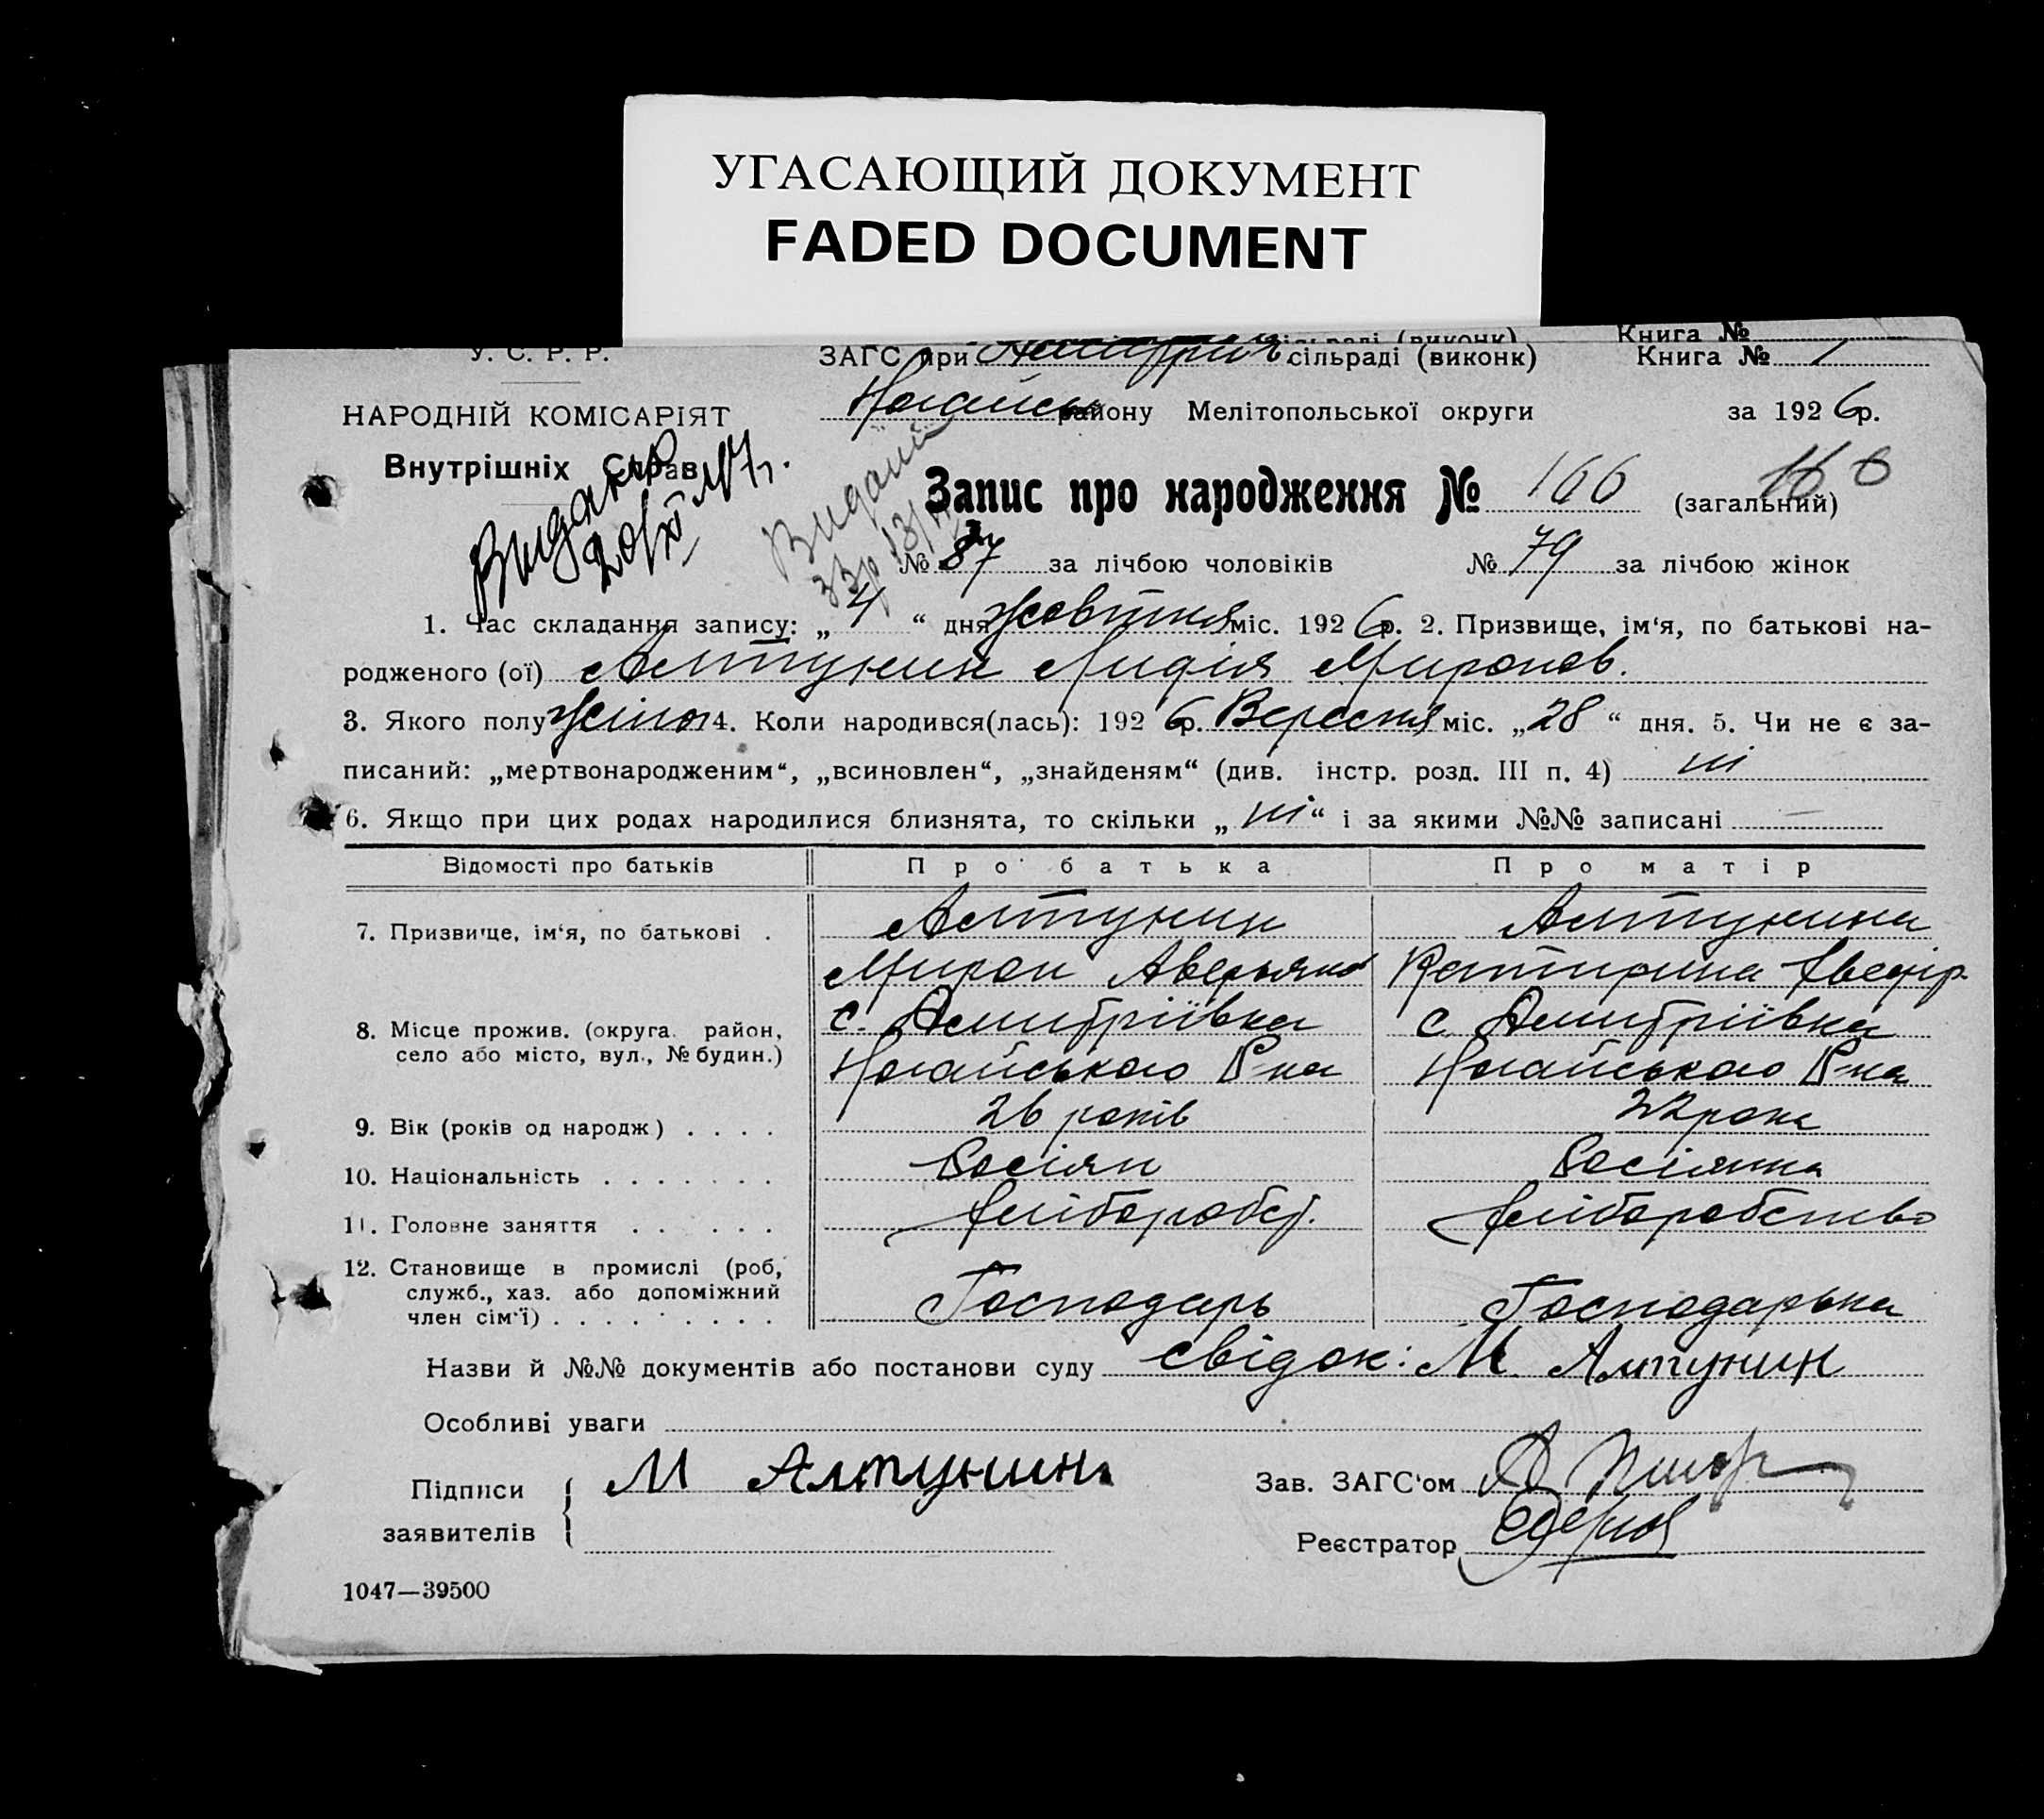 УГАСАЮЩИЙ ДОКУМЕНТ
FADED DOCUMENT
Книга №
У. С. Р. Р. ЗАГС при сільраді (виконк) Книга № 1
НАРОДНІЙ КОМІСАРІЯТ Ногайськ району Мелітопольської округи за 1926 р.
Внутрішніх Справ
Запис про народження № 166 (загальний) 166
№ 87 за лічбою чоловіків № 79 за лічбою жінок
1. Час складання запису: „ 4 “ дня жовтня міс. 1926 р. 2. Призвище, ім‘я, по батькові на-
родженого (ої) Алтунин Лидія Миронов.
3. Якого полу жіноч 4. Коли народився(лась): 1926 р. Вересня міс. „ 28 “ дня. 5. Чи не є за-
писаний: „мертвонародженим“, „всиновлен“, „знайденям“ (див. інстр. розд. III п. 4) ні
6. Якщо при цих родах народилися близнята, то скільки „ ні “ і за якими №№ записані —
Відомості про батьків Про батька Про матір
7. Призвище, ім‘я, по батькові . Алтунин Алтунина
Мирон Аверьянов Катирина
8. Місце прожив. (округа. район, с. Дмитріївка с. Дмитріївка
село або місто, вул., № будин.) Ногайського Р-на Ногайського Р-на
9. Вік (років од народж) . . . . 26 років 22 роки
10. Національність . . . . . . . Росіян Росіянка
11. Головне заняття . . . . . . хліборобст. хліборобство
12. Становище в промислі (роб,
служб., хаз. або допоміжний
член сім‘ї) . . . . . . . . . Господарь Господарька
Назви й №№ документів або постанови суду свідок: М Алтунин
Особливі уваги
Підписи заявителів М Алтунин.
Зав. ЗАГС‘ом
Реєстратор
1047—39500